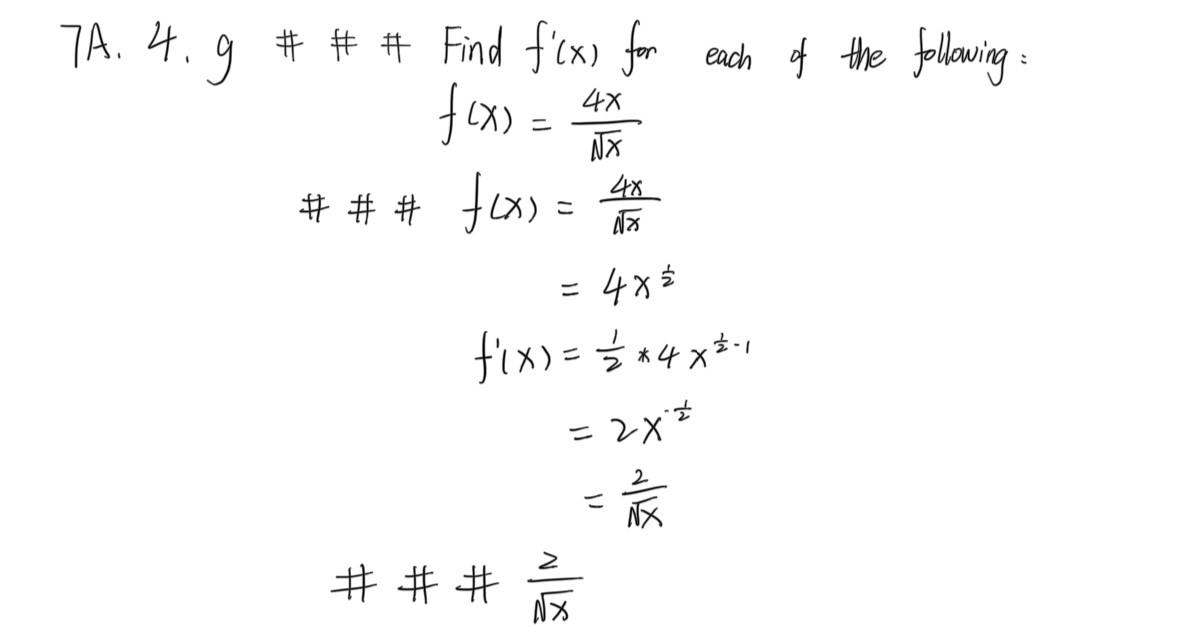 7A. 4. g # # # Find f'(x) for each of the following:
f(x) = 4x/√x
# # # f(x) = 4x/√x
= 4x^½
f'(x) = ½ * 4x^(½-1)
= 2x^(-½)
= 2/√x
# # # 2/√x